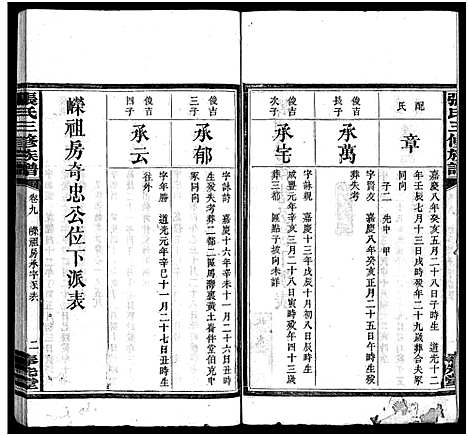 張氏三修族譜
配章氏
嘉慶八年癸亥五月二十八日子時生 道光十二
年壬辰七月十三日戌時歿年二十九歲葬合夫塚
同向
子二 先中 甲
俊吉長子 承萬
字賢友 嘉慶八年癸亥正月二十五日午時生歿
葬失考
俊吉次子 承宅
字詠觀 嘉慶十三年戊辰七月初八日辰時生
咸豐元年辛亥三月二十八日寅時歿年四十三歲
葬三都 區點子坡向未詳
俊吉三子 承郁
字詠詩 嘉慶十六年辛未十一月二十六日丑時
生歿失考葬二都二區馬灣裏黃土耆件堂伯克中
塚內同向
俊吉四子 承云
字年勝 道光元年辛巳十一月二十七日丑時生
往外
嶸祖房奇忠公位下派表
張氏三修族譜
卷九 嶸祖房承字派表
二 孝友堂